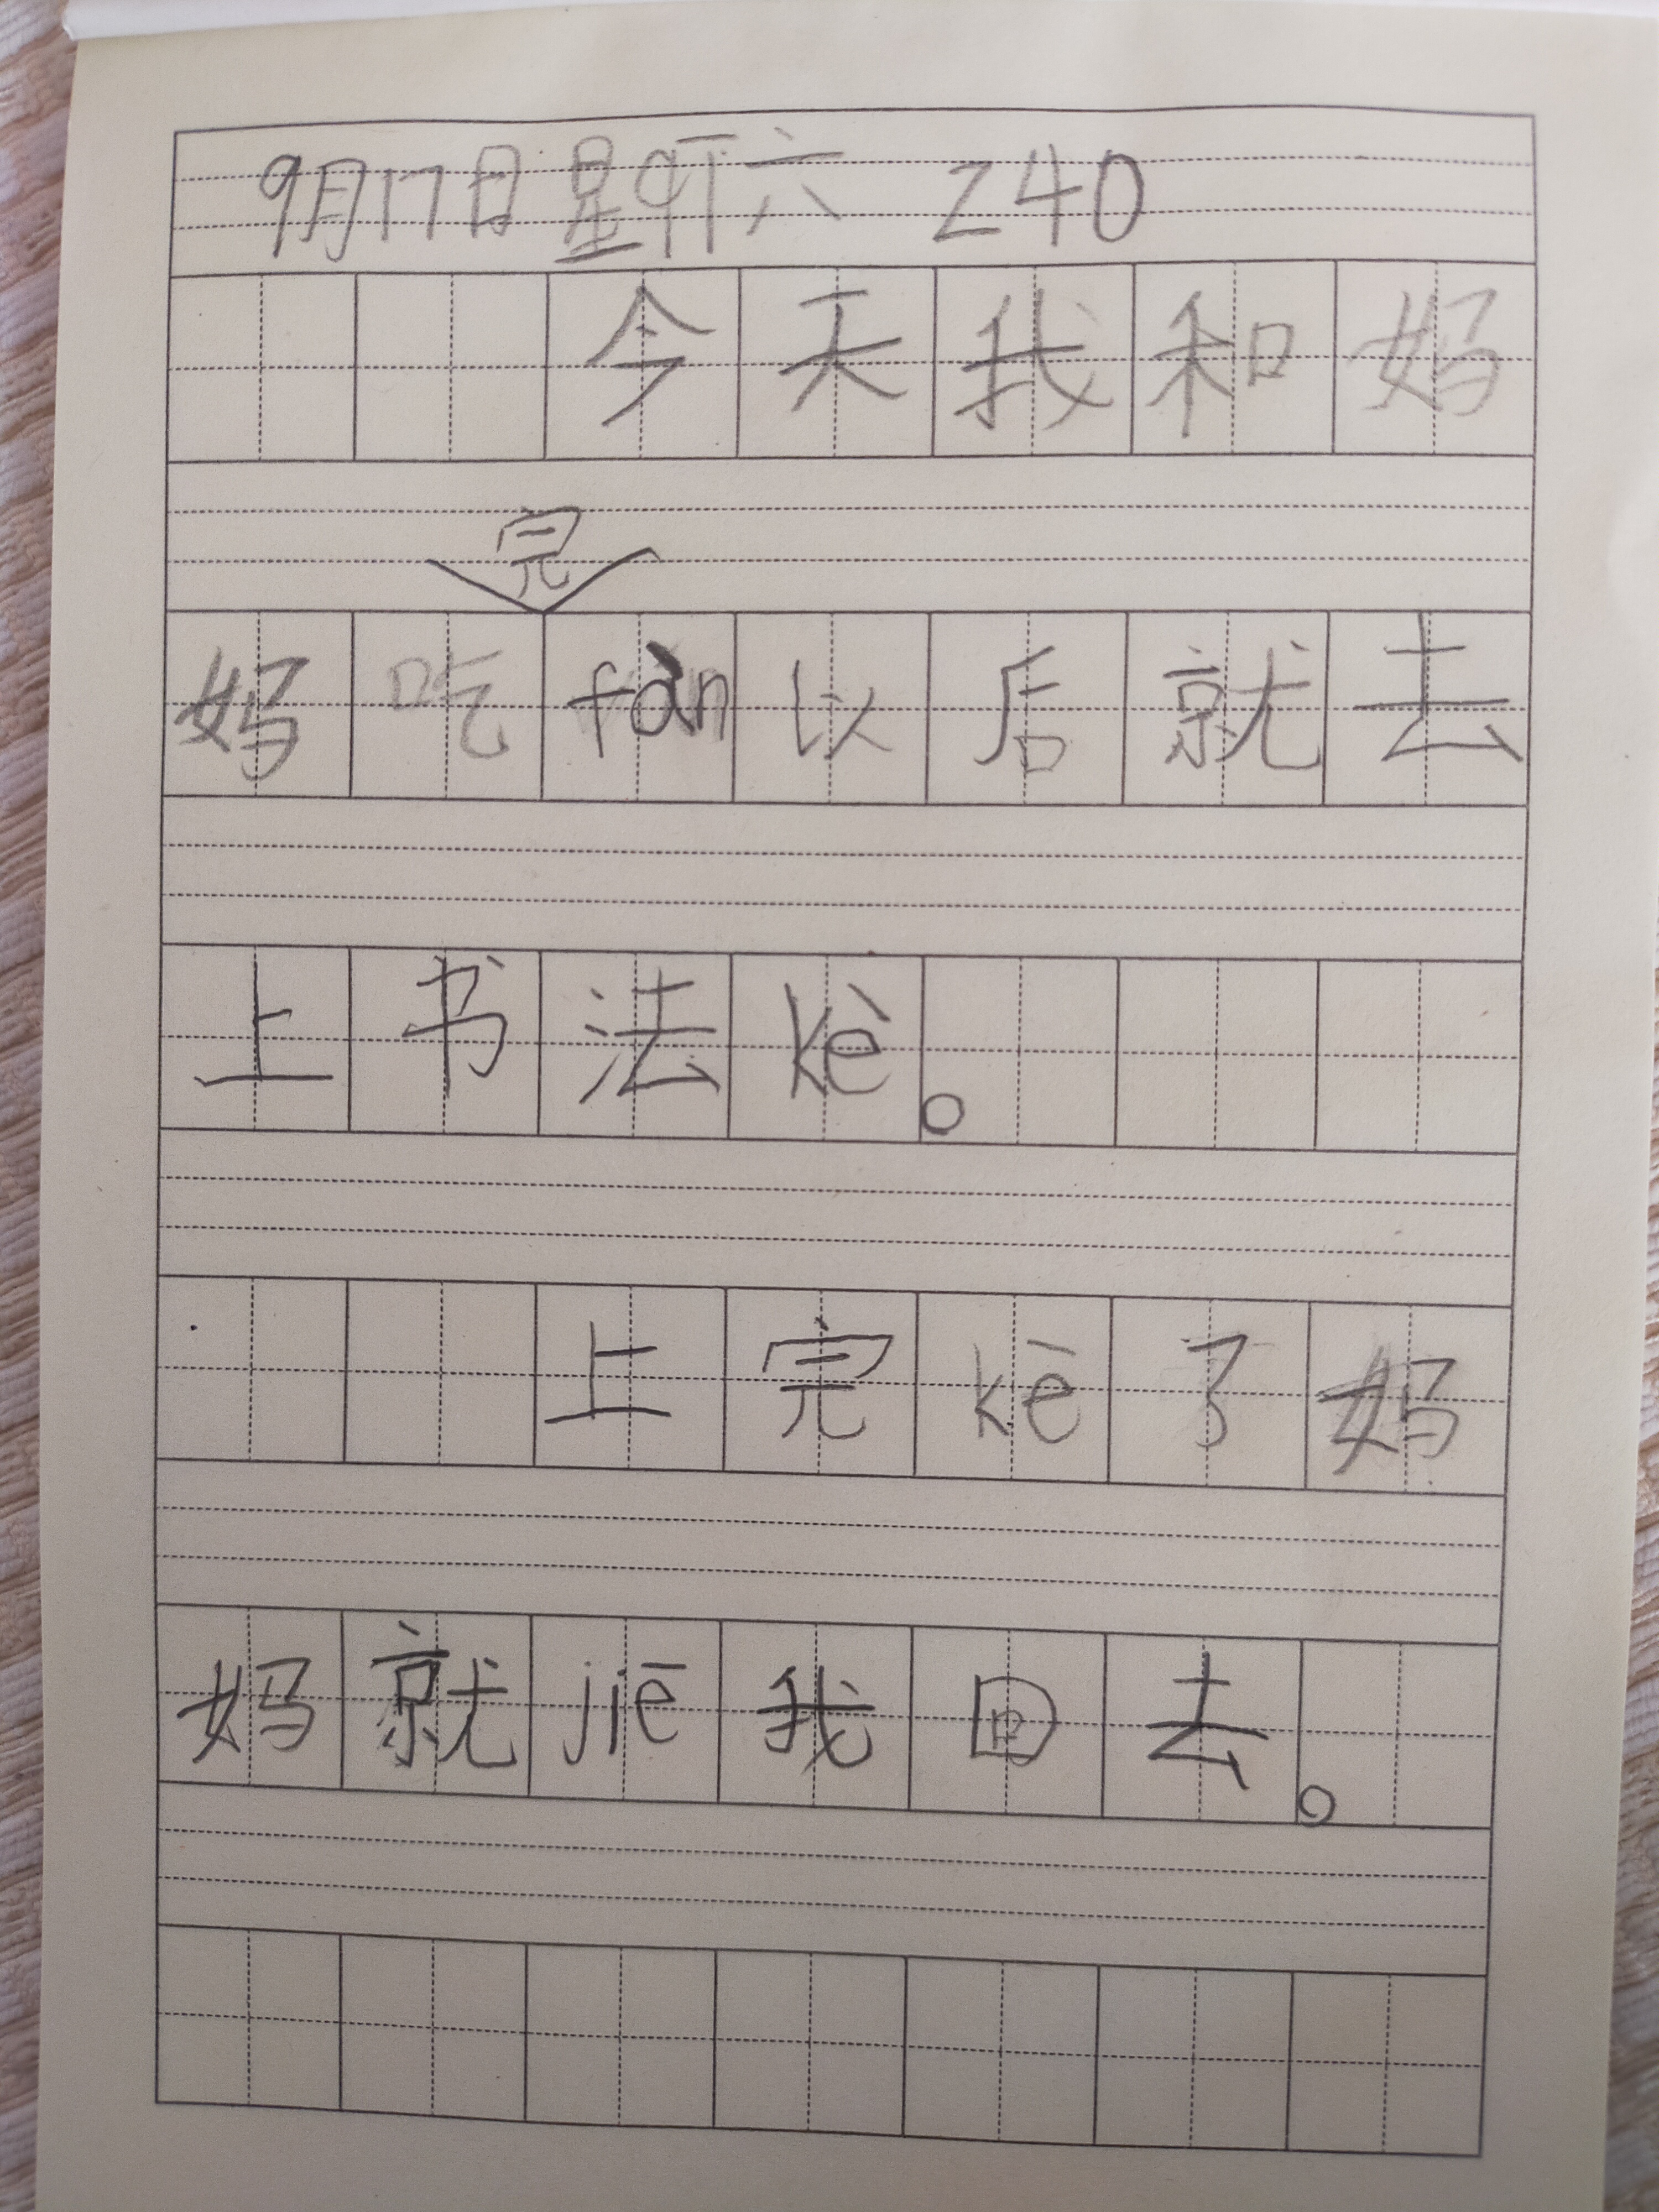 9月17日星qī六 240
今天我和妈
完
妈吃fàn以后就去
上书法kè。
上完kē了妈
妈就jiē我回去。